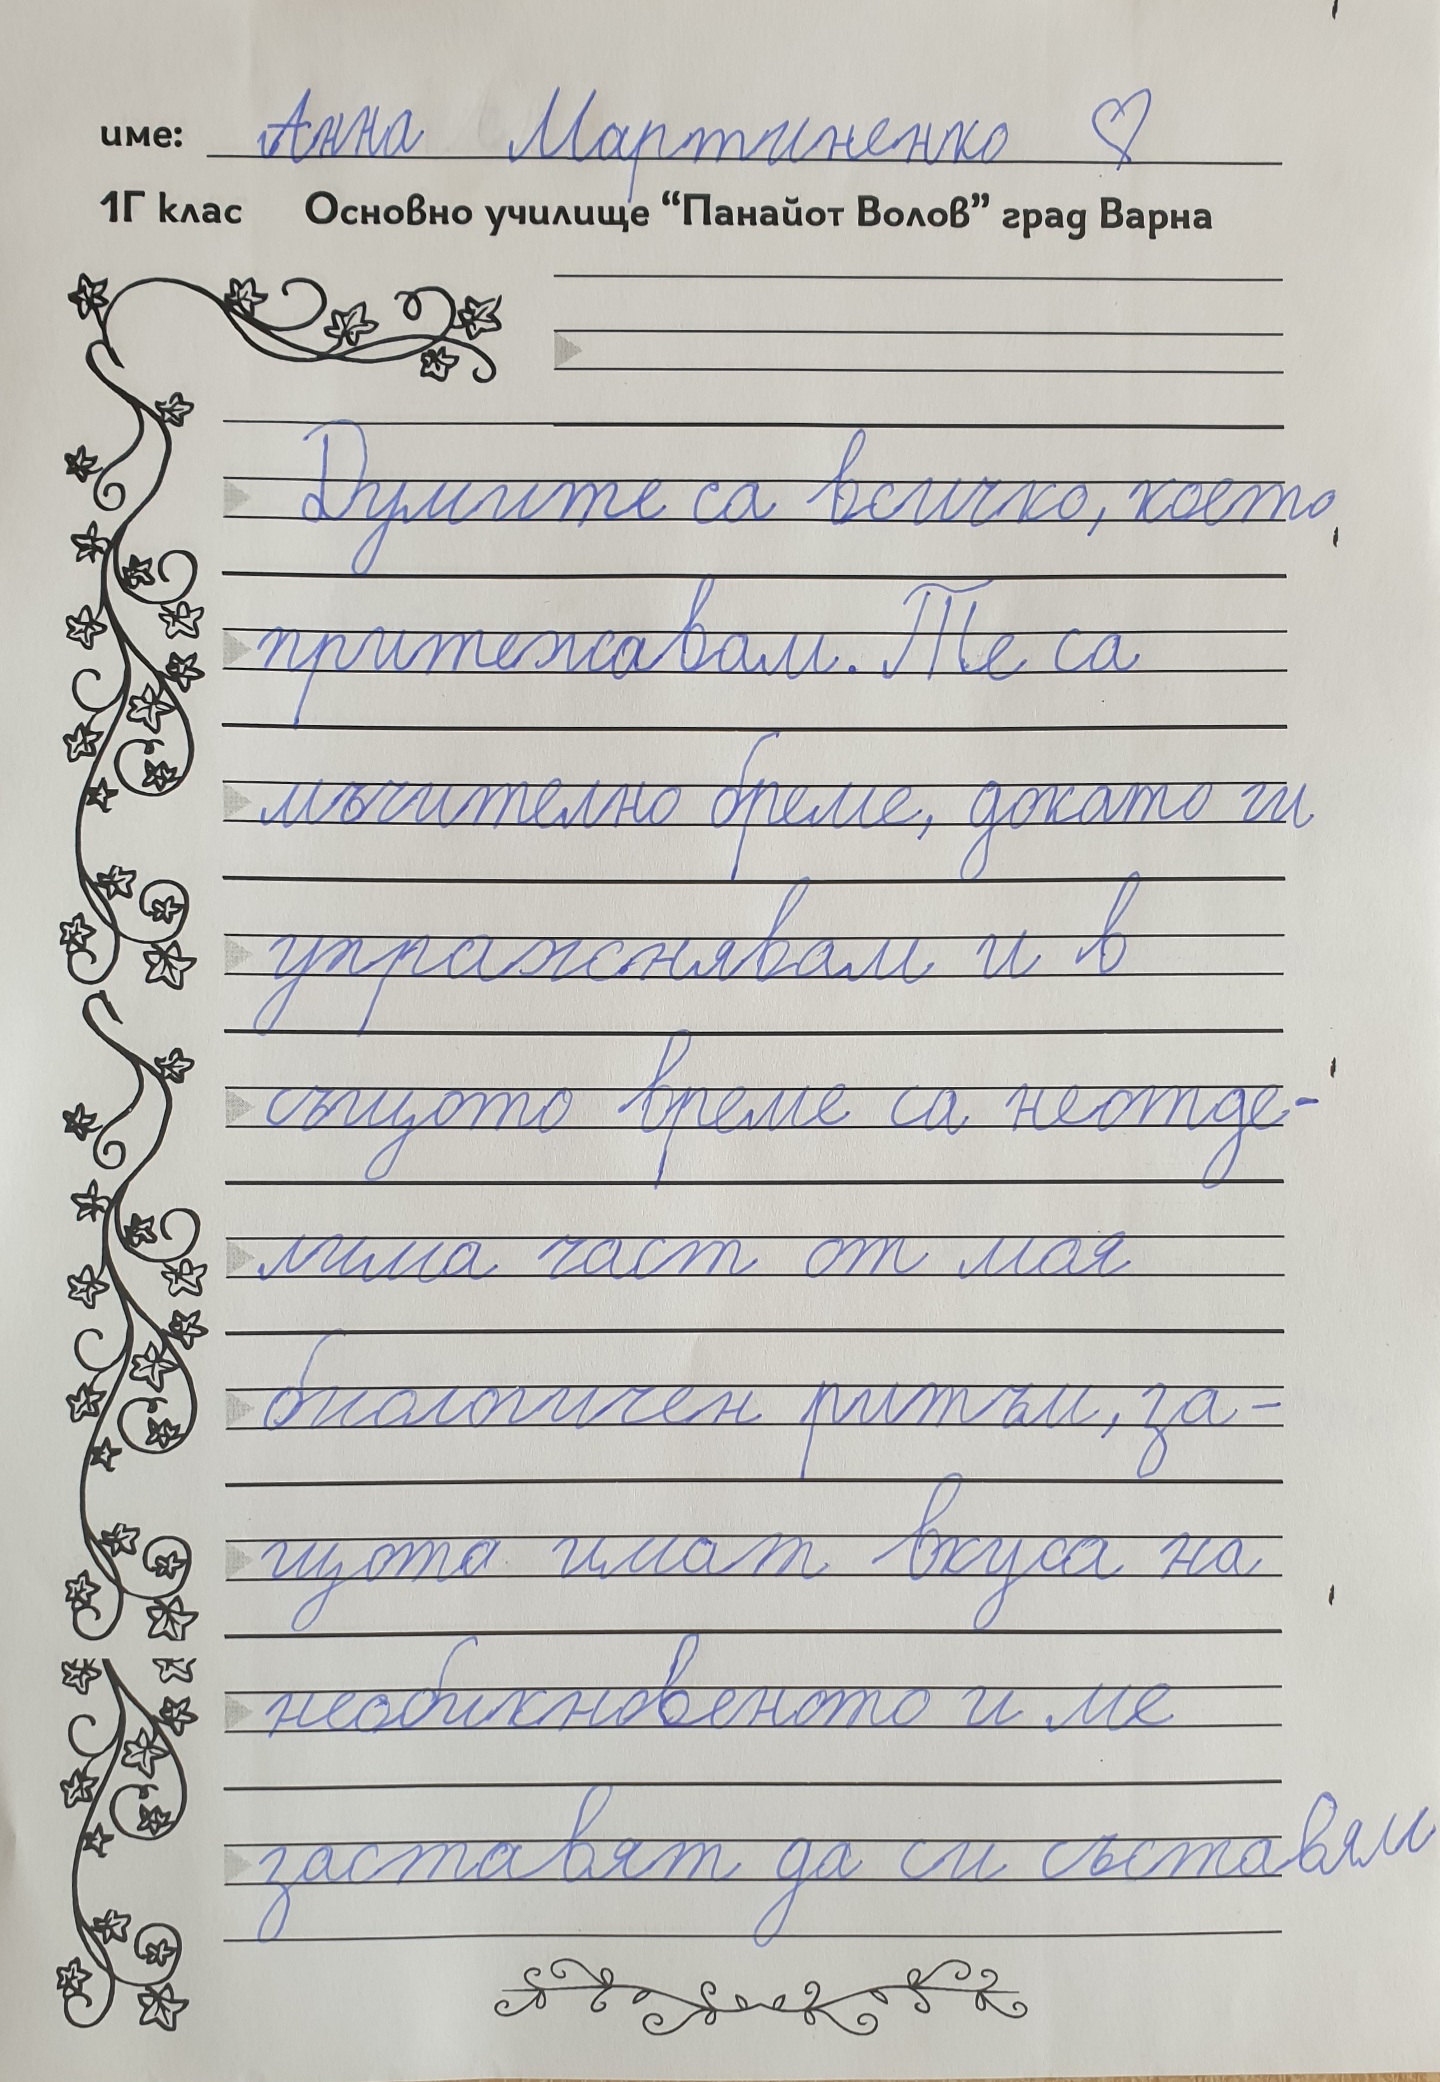 име: Анна Мартиненко ♡
1Г клас Основно училище “Панайот Волов” град Варна
Думите са всичко, което
притежавам. Те са
мъчително бреме, докато ги
упражнявам и в
същото време са неотде-
лима част от моя
биологичен ритъм, за-
щото имат вкуса на
необикновеното и ме
заставят да си съставям